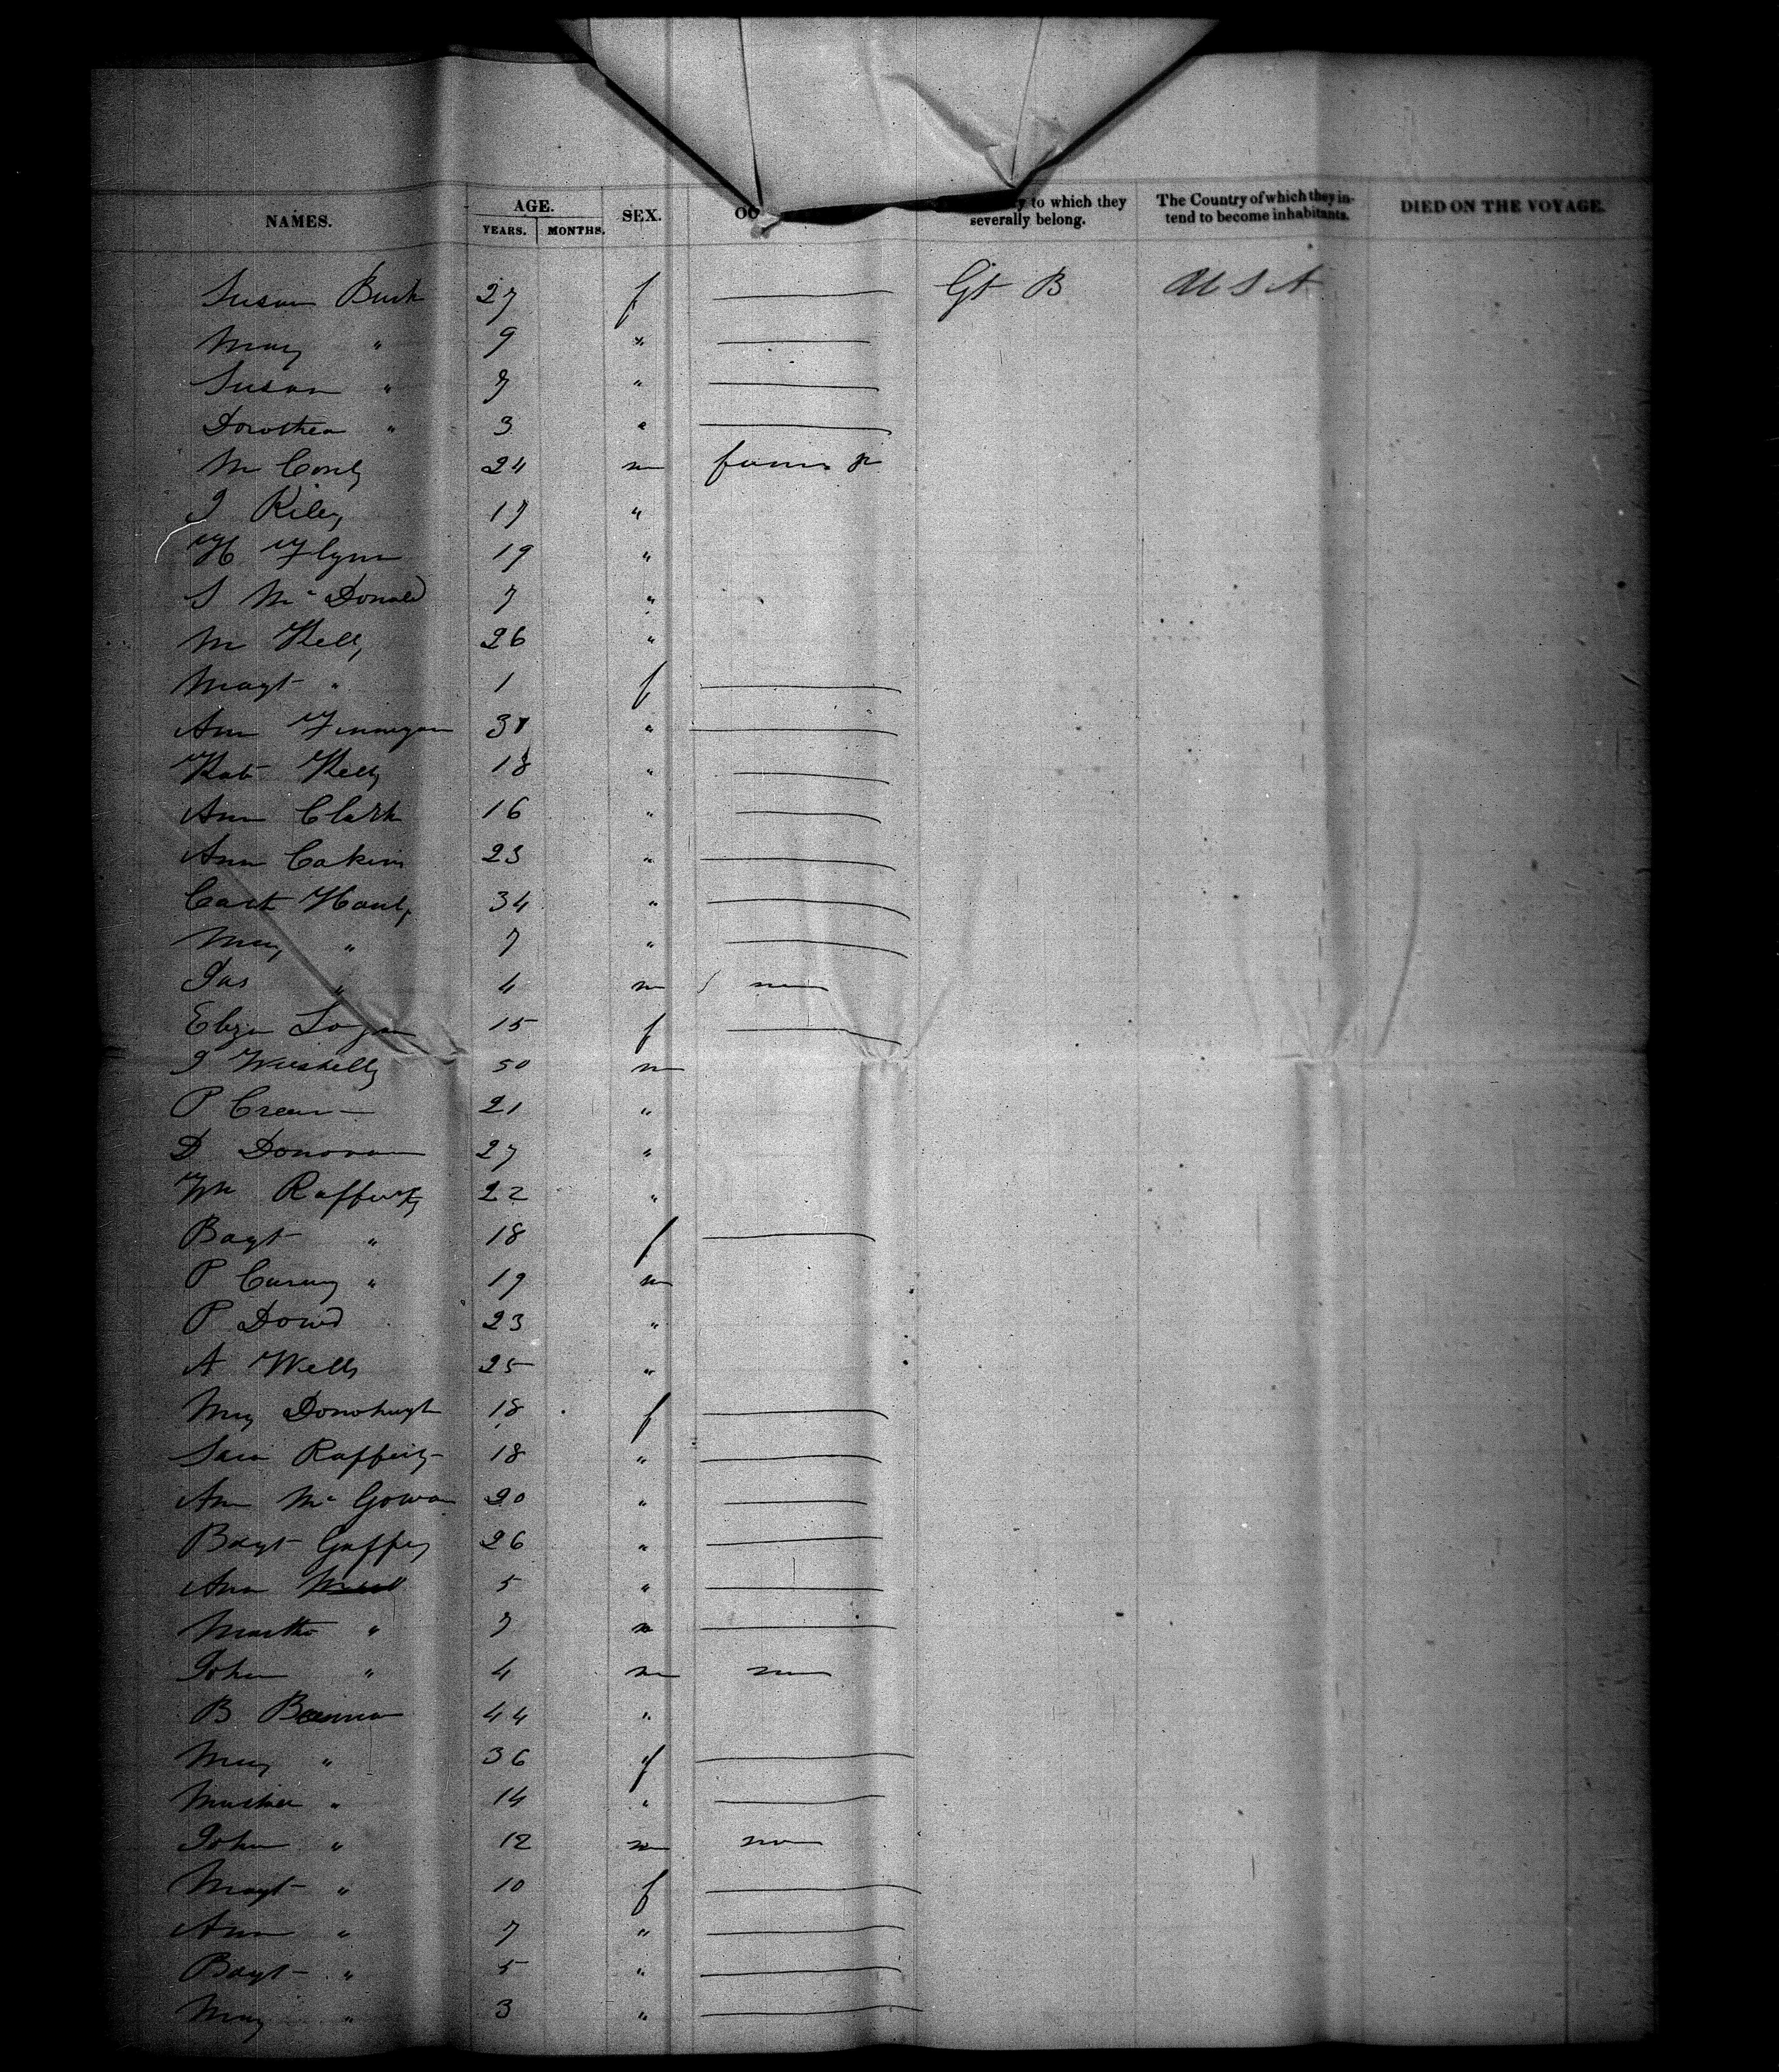 NAMES. AGE. YEARS. MONTHS. SEX. OC to which they severally belong. The Country of which they intend to become inhabitants. DIED ON THE VOYAGE.
Susan Burk 27 f Gt B U S A
Mary " 9 "
Susan " 7 "
Dorothea " 3 "
M Conly 24 m
J Riley 17 "
H Flynn 19 "
S Mc Donald 7 "
M Kelly 26 "
Magt " 1 f
Ann Finnegan 3
Kate Kelly 18 "
Ann Clark 16 "
Ann Cakin 23 "
Cath Hanly 34 "
Mary " 7 "
Jas " 4 m
Eliza Logan 15 f
J 50 m
P Crean 21 "
D Donovan 27 "
Wm Rafferty 22 "
Bagt " 18 f
P " 19 m
P Dowd 23 "
A Wells 25 "
My Donohugh 18 f
Sara Rafferty 18 "
Ann Mc Gowan 20 "
Bagt Gaffey 26 "
Ann 5 "
Martha " 7
John " 4 m
B 44 "
Mary " 36 f
" 14 "
John " 12 m
Magt " 10 f
Ann " 7 "
Bagt " 5 "
May " 3 "